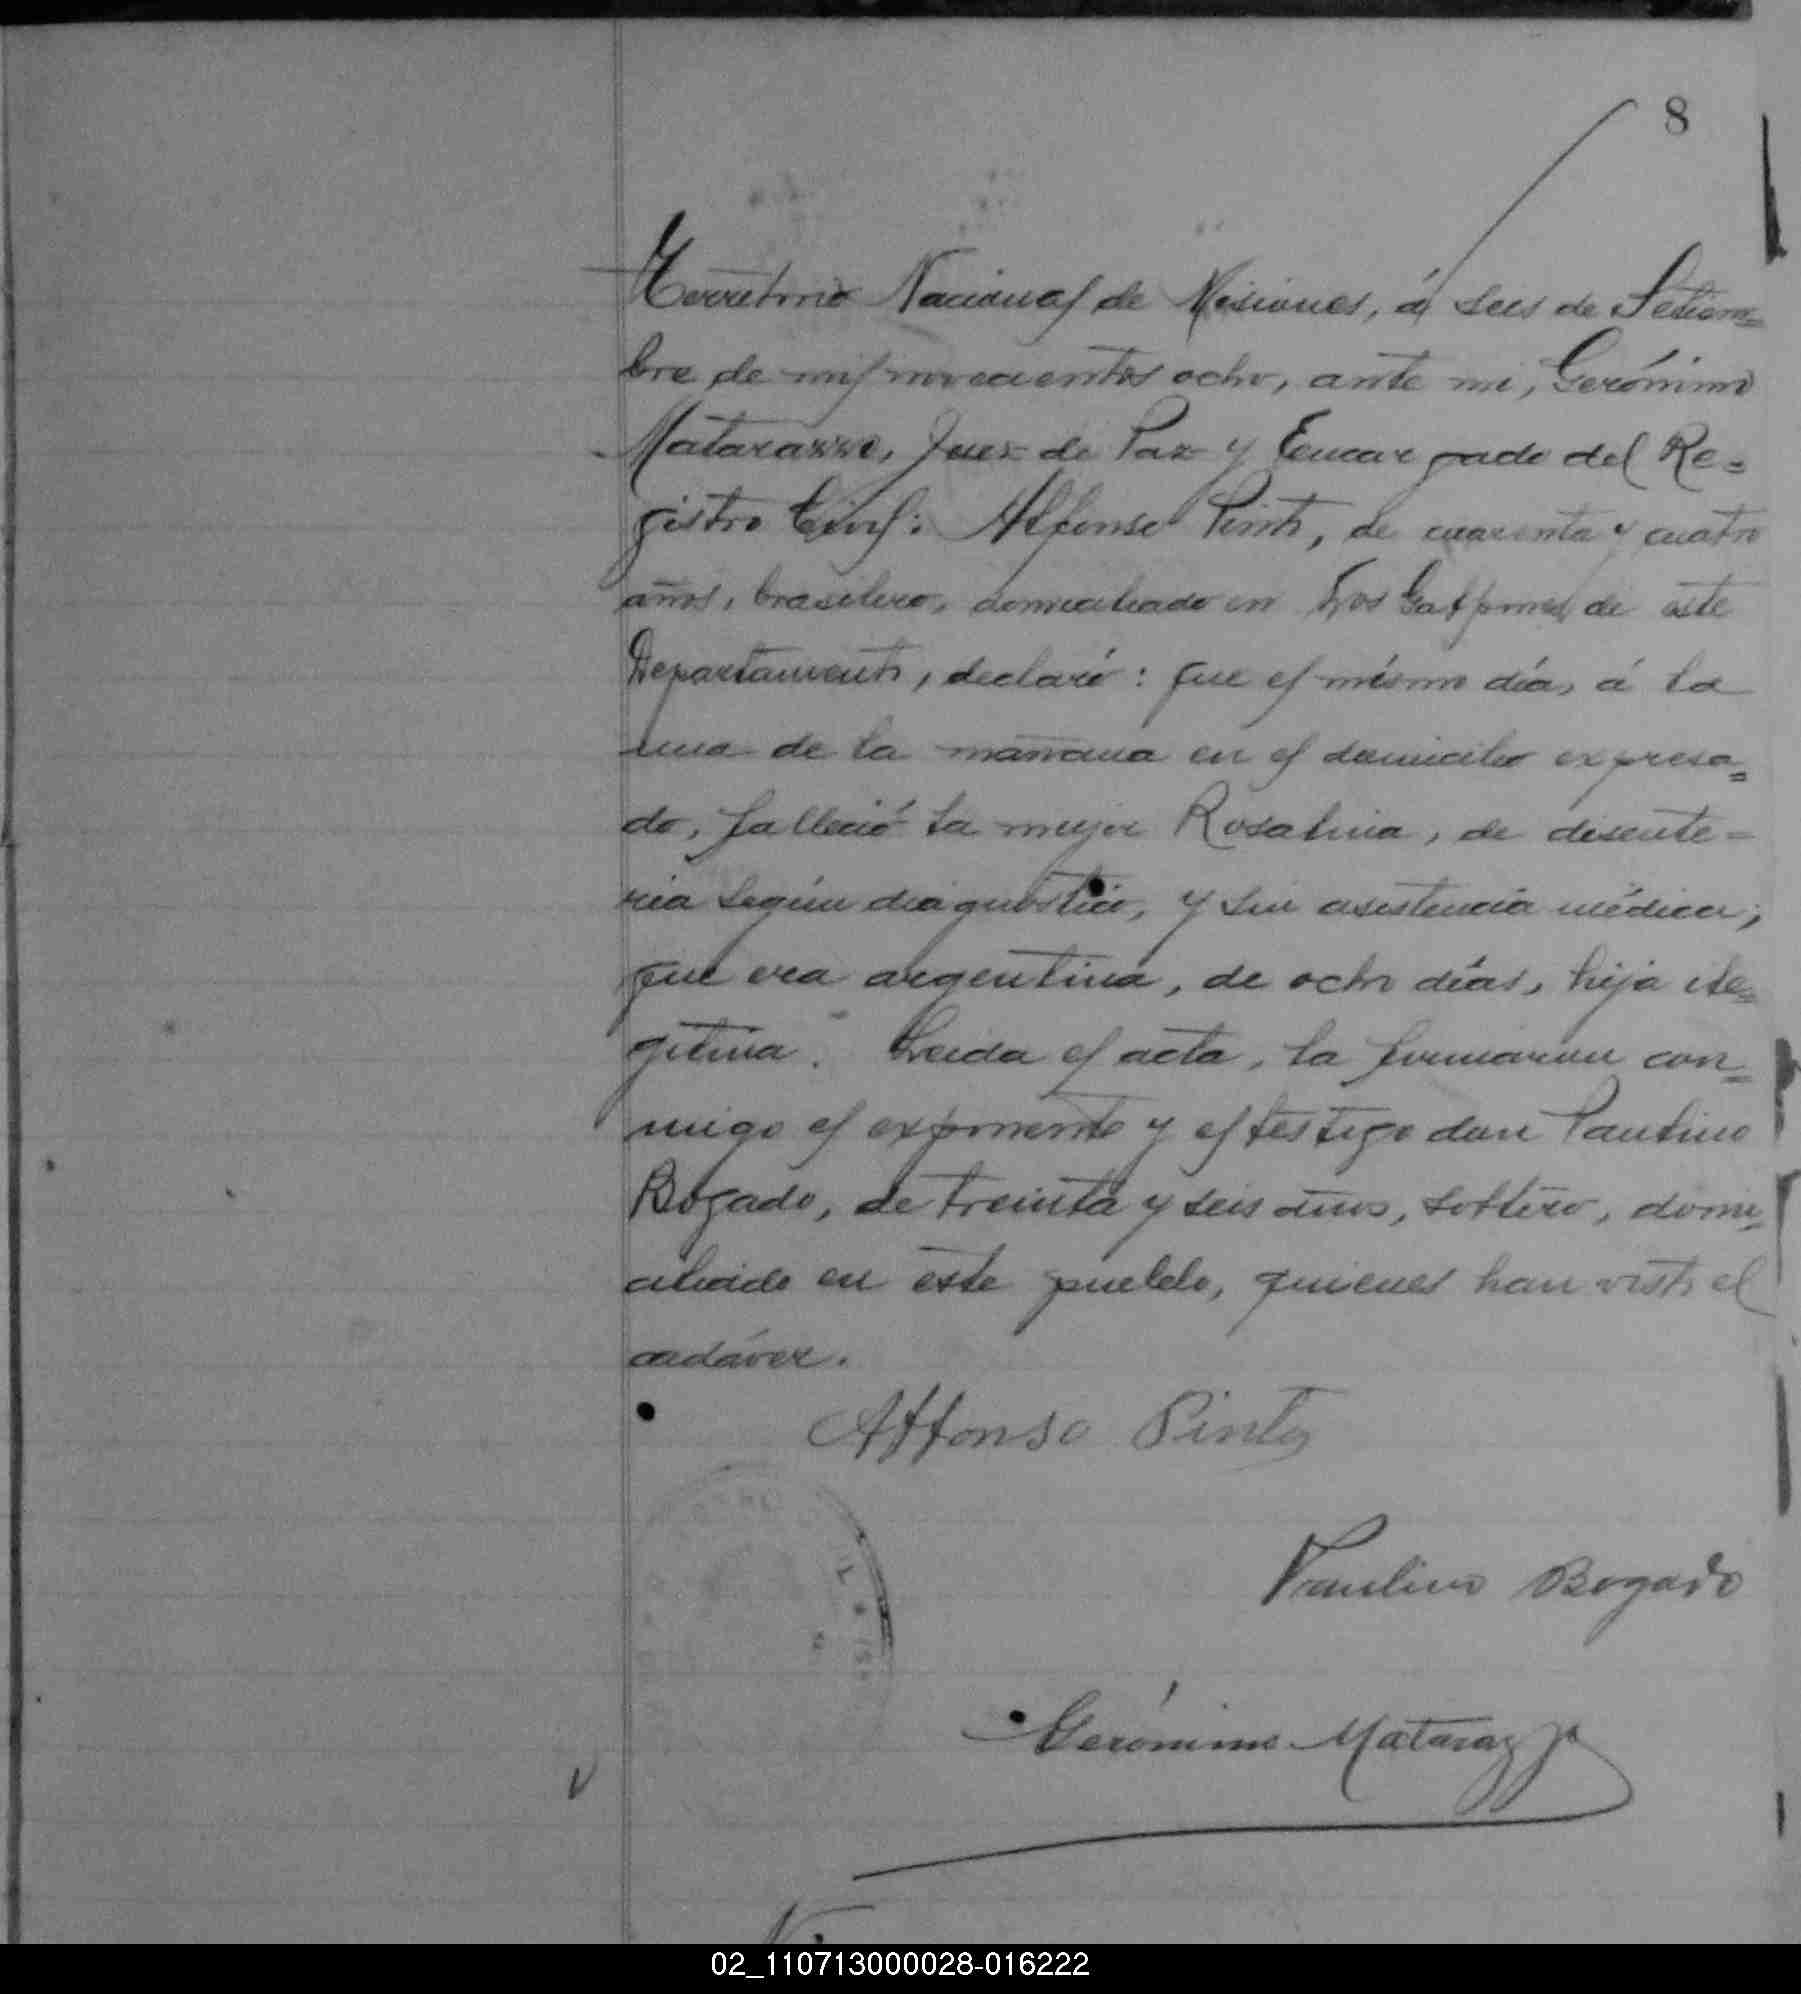 8
Territorio Nacional de Misiones, á seis de Setiem=
bre de mil novecientos ocho, ante mi, Gerónimo
Matarazzo, Juez de Paz y Encargado del Re=
gistro Civil: Alfonso Pinto, de cuarenta y cuatro
años, brasilero, domiciliado en Los Galpones de este
Departamento, declaró: que el mismo día, á la
una de la mañana en el domicilio expresa=
do, falleció la mujer Rosalina, de disente=
ria según diagnóstico, y sin asistencia médica;
que era argentina, de ocho días, hija ile=
gitima. Leida el acta, la firmaron con=
migo el exponente y el testigo don Paulino
Bogado, de treinta y seis años, soltero, domi=
ciliado en este pueblo, quienes han visto el
cadáver.
Affonso Pinto
Paulino Bogado
Gerónimo Matarazzo
02_110713000028-016222